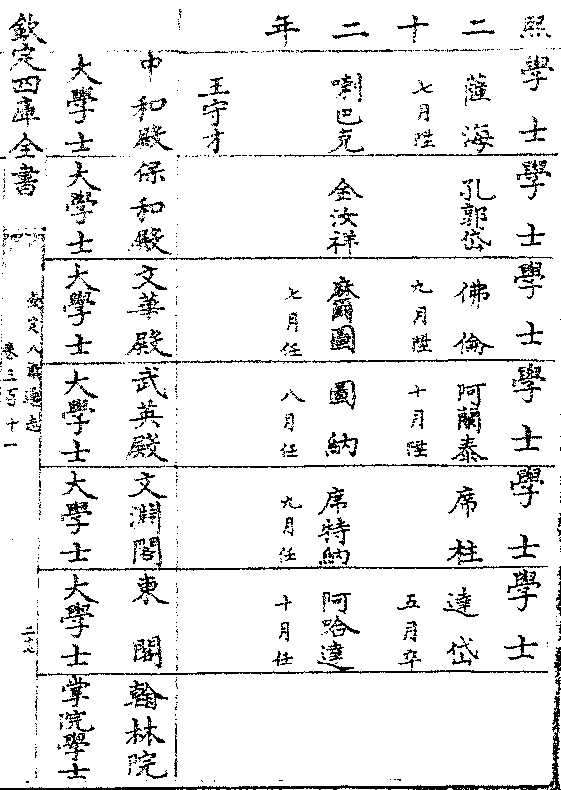 熙二十二年
學士 學士 學士 學士 學士 學士
薩海 孔郭岱 佛倫 阿蘭泰 席柱 達岱
七月陞 九月陞 十月陞 五月卒
喇巴克 金汝祥 麻爾圖 圖納 席特納 阿哈達
七月任 八月任 九月任 十月任
王守才
中和殿 保和殿 文華殿 武英殿 文淵閣 東閣 翰林院
大學士 大學士 大學士 大學士 大學士 大學士 掌院學士
欽定四庫全書
欽定八旗通志
卷三百十一